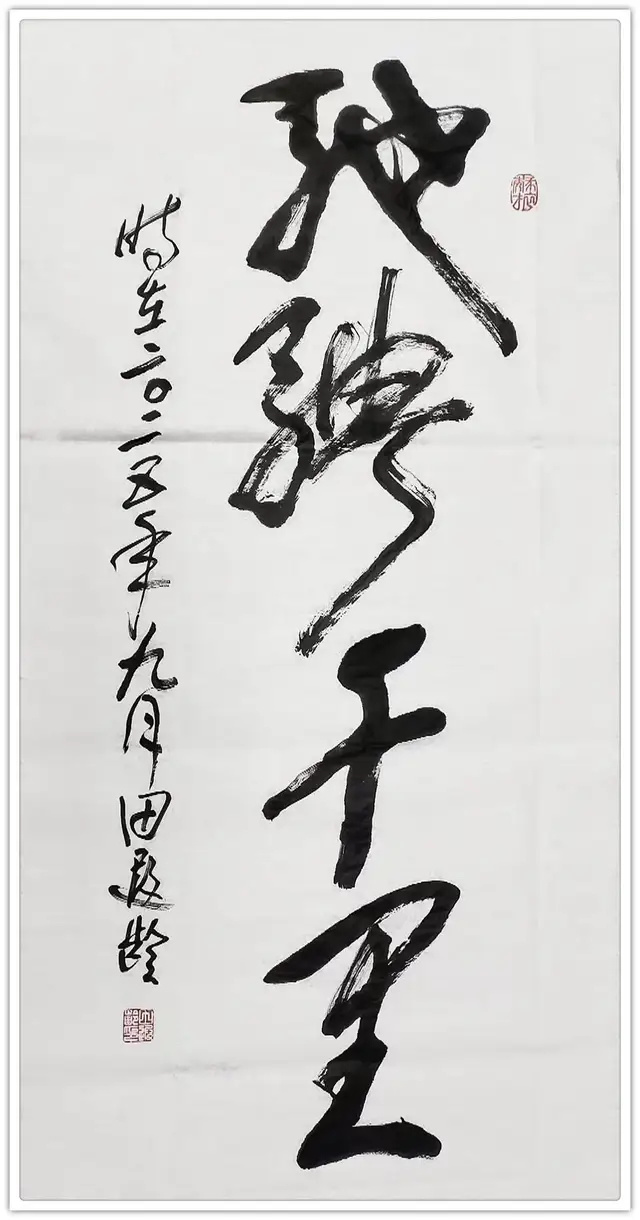 驰骋千里
时在二〇二五年九月田遐龄